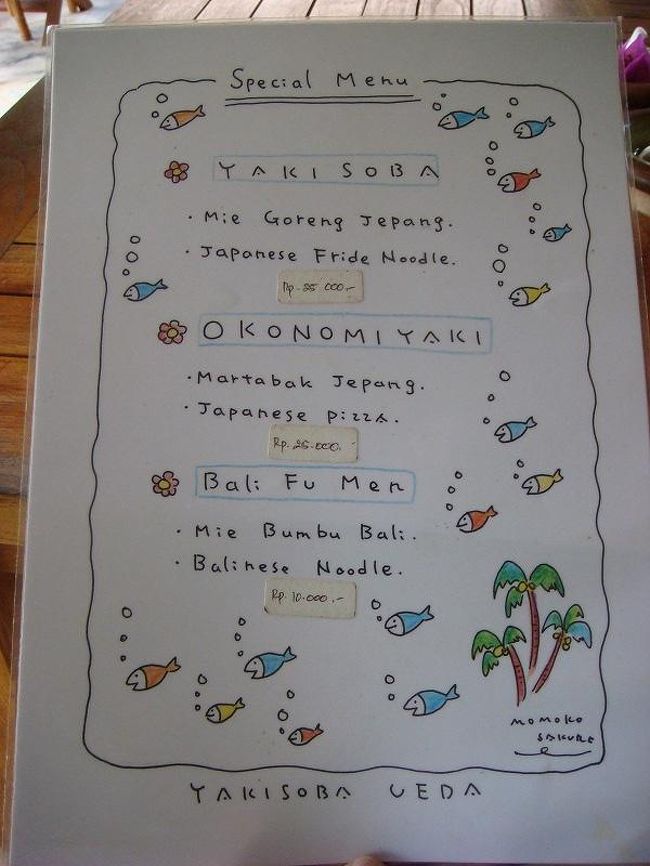 Special Menu
YAKISOBA
· Mie Goreng Jepang.
· Japanese Fride Noodle.
Rp. 25.000,-
OKONOMIYAKI
· Martabak Jepang.
· Japanese pizza.
Rp. 25.000,-
Bali Fu Men
· Mie Bumbu Bali.
· Balinese Noodle.
Rp. 10.000,-
MOMOKO
SAKURA
YAKISOBA UEDA